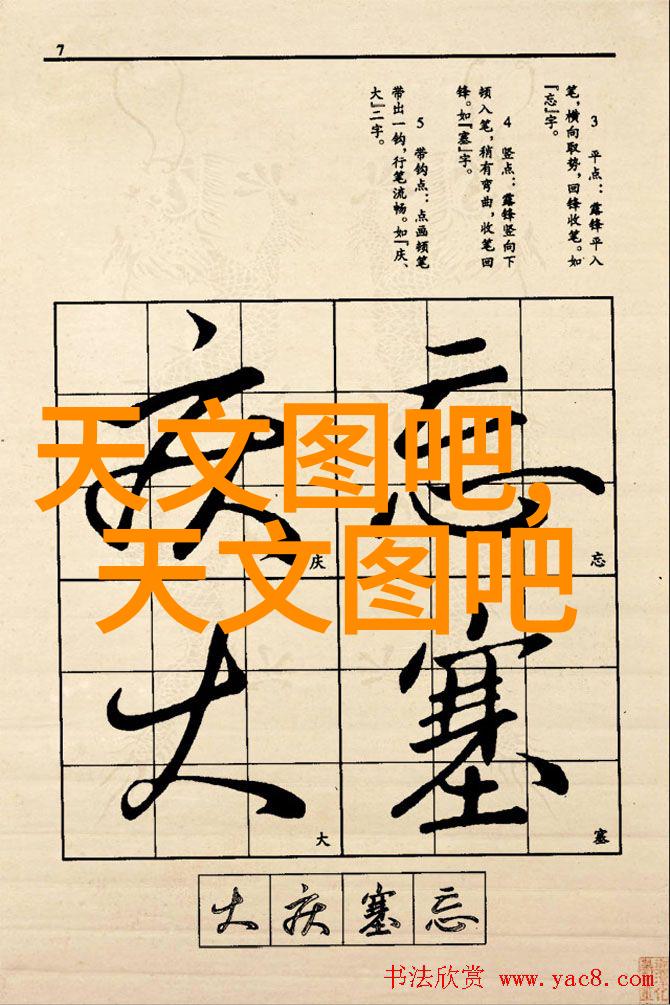 7
3 平点：露锋平入
笔，横向取势，回锋收笔。如
『忘』字。
4 竖点：露锋竖向下
顿入笔，稍有弯曲，收笔回
锋。如『塞』字。
5 带钩点：点画顿笔
带出一钩，行笔流畅。如『庆、
大』二字。
天文图吧，
天文图吧
忘
庆
忘
庆
塞
大
塞
大
大庆塞忘
书法欣赏 www.yac8.com